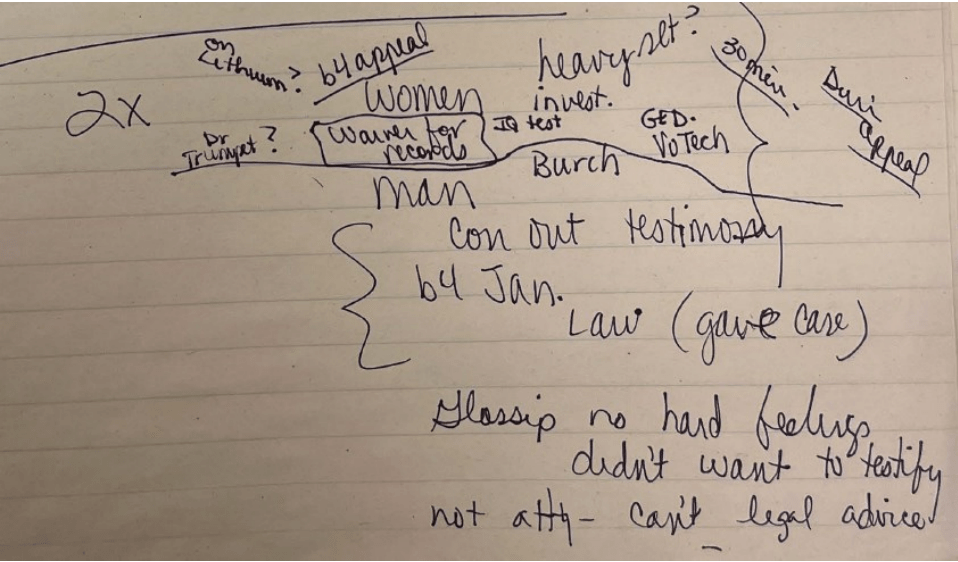 on Lithium? b4 appeal heavy set? 30 min.
2x women invest. Duri appeal
Dr Trumpet? waiver for records IQ test GED. VoTech
man Burch
Con out testimony
b4 Jan.
Law (gave case)
Glossip no hard feelings
didn't want to testify
not atty - can't legal advice